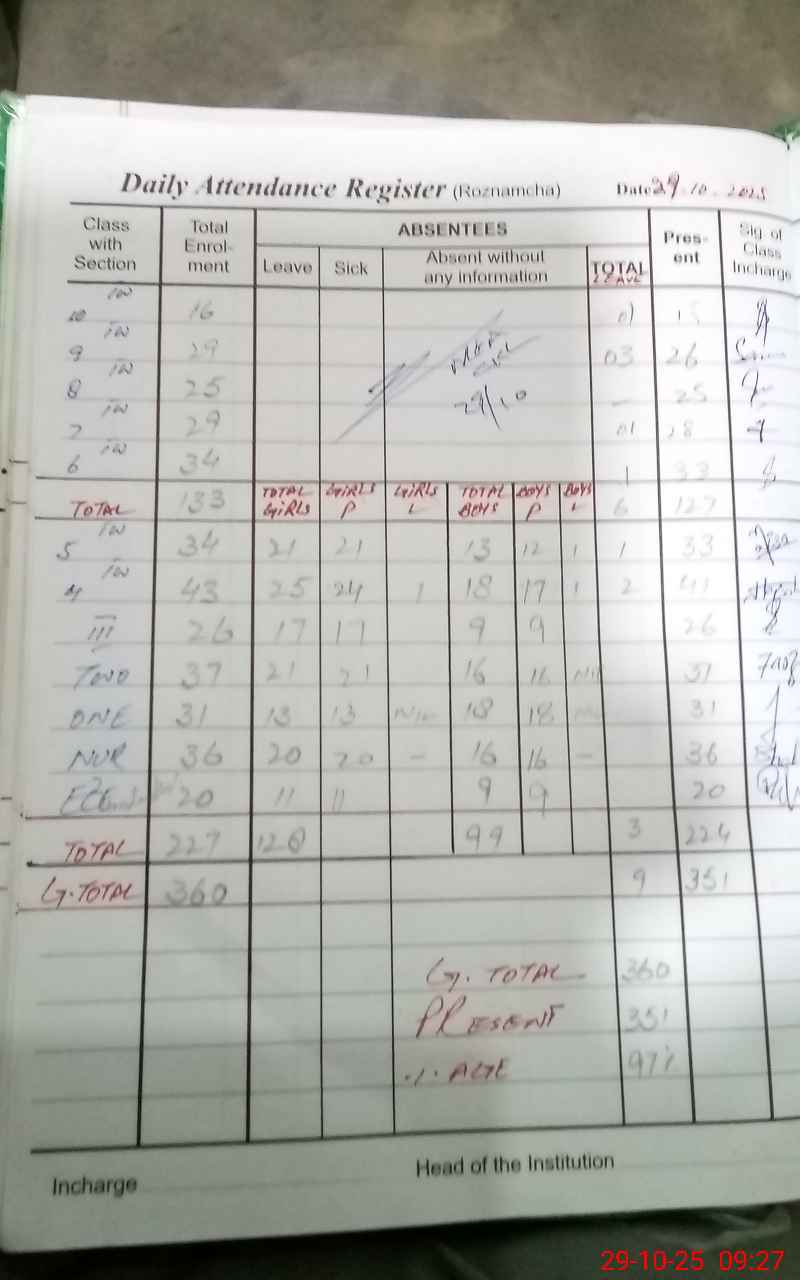 Daily Attendance Register (Roznamcha) Date 29.10.2025
Class with Section Total Enrol-ment ABSENTEES Pres-ent Sig. of Class Incharge
Leave Sick Absent without any information TOTAL LEAVE
10 16 01 15
9 29 03 26
29/10
8 25 — 25
7 29 01 28
6 34 1 33
TOTAL 133 TOTAL GIRLS GIRLS P GIRLS L TOTAL BOYS BOYS P BOYS L 6 127
5 34 21 21 13 12 1 1 33
4 43 25 24 1 18 17 1 2 41
III 26 17 17 9 9 26
TWO 37 21 21 16 16 Nil 37
ONE 31 13 13 Nil 18 18 31
NUR 36 20 20 - 16 16 - 36
ECE 20 11 11 9 9 20
TOTAL 227 128 99 3 224
G.TOTAL 360 9 351
G. TOTAL 360
PRESENT 351
%. AGE 97%
Incharge Head of the Institution
29-10-25 09:27